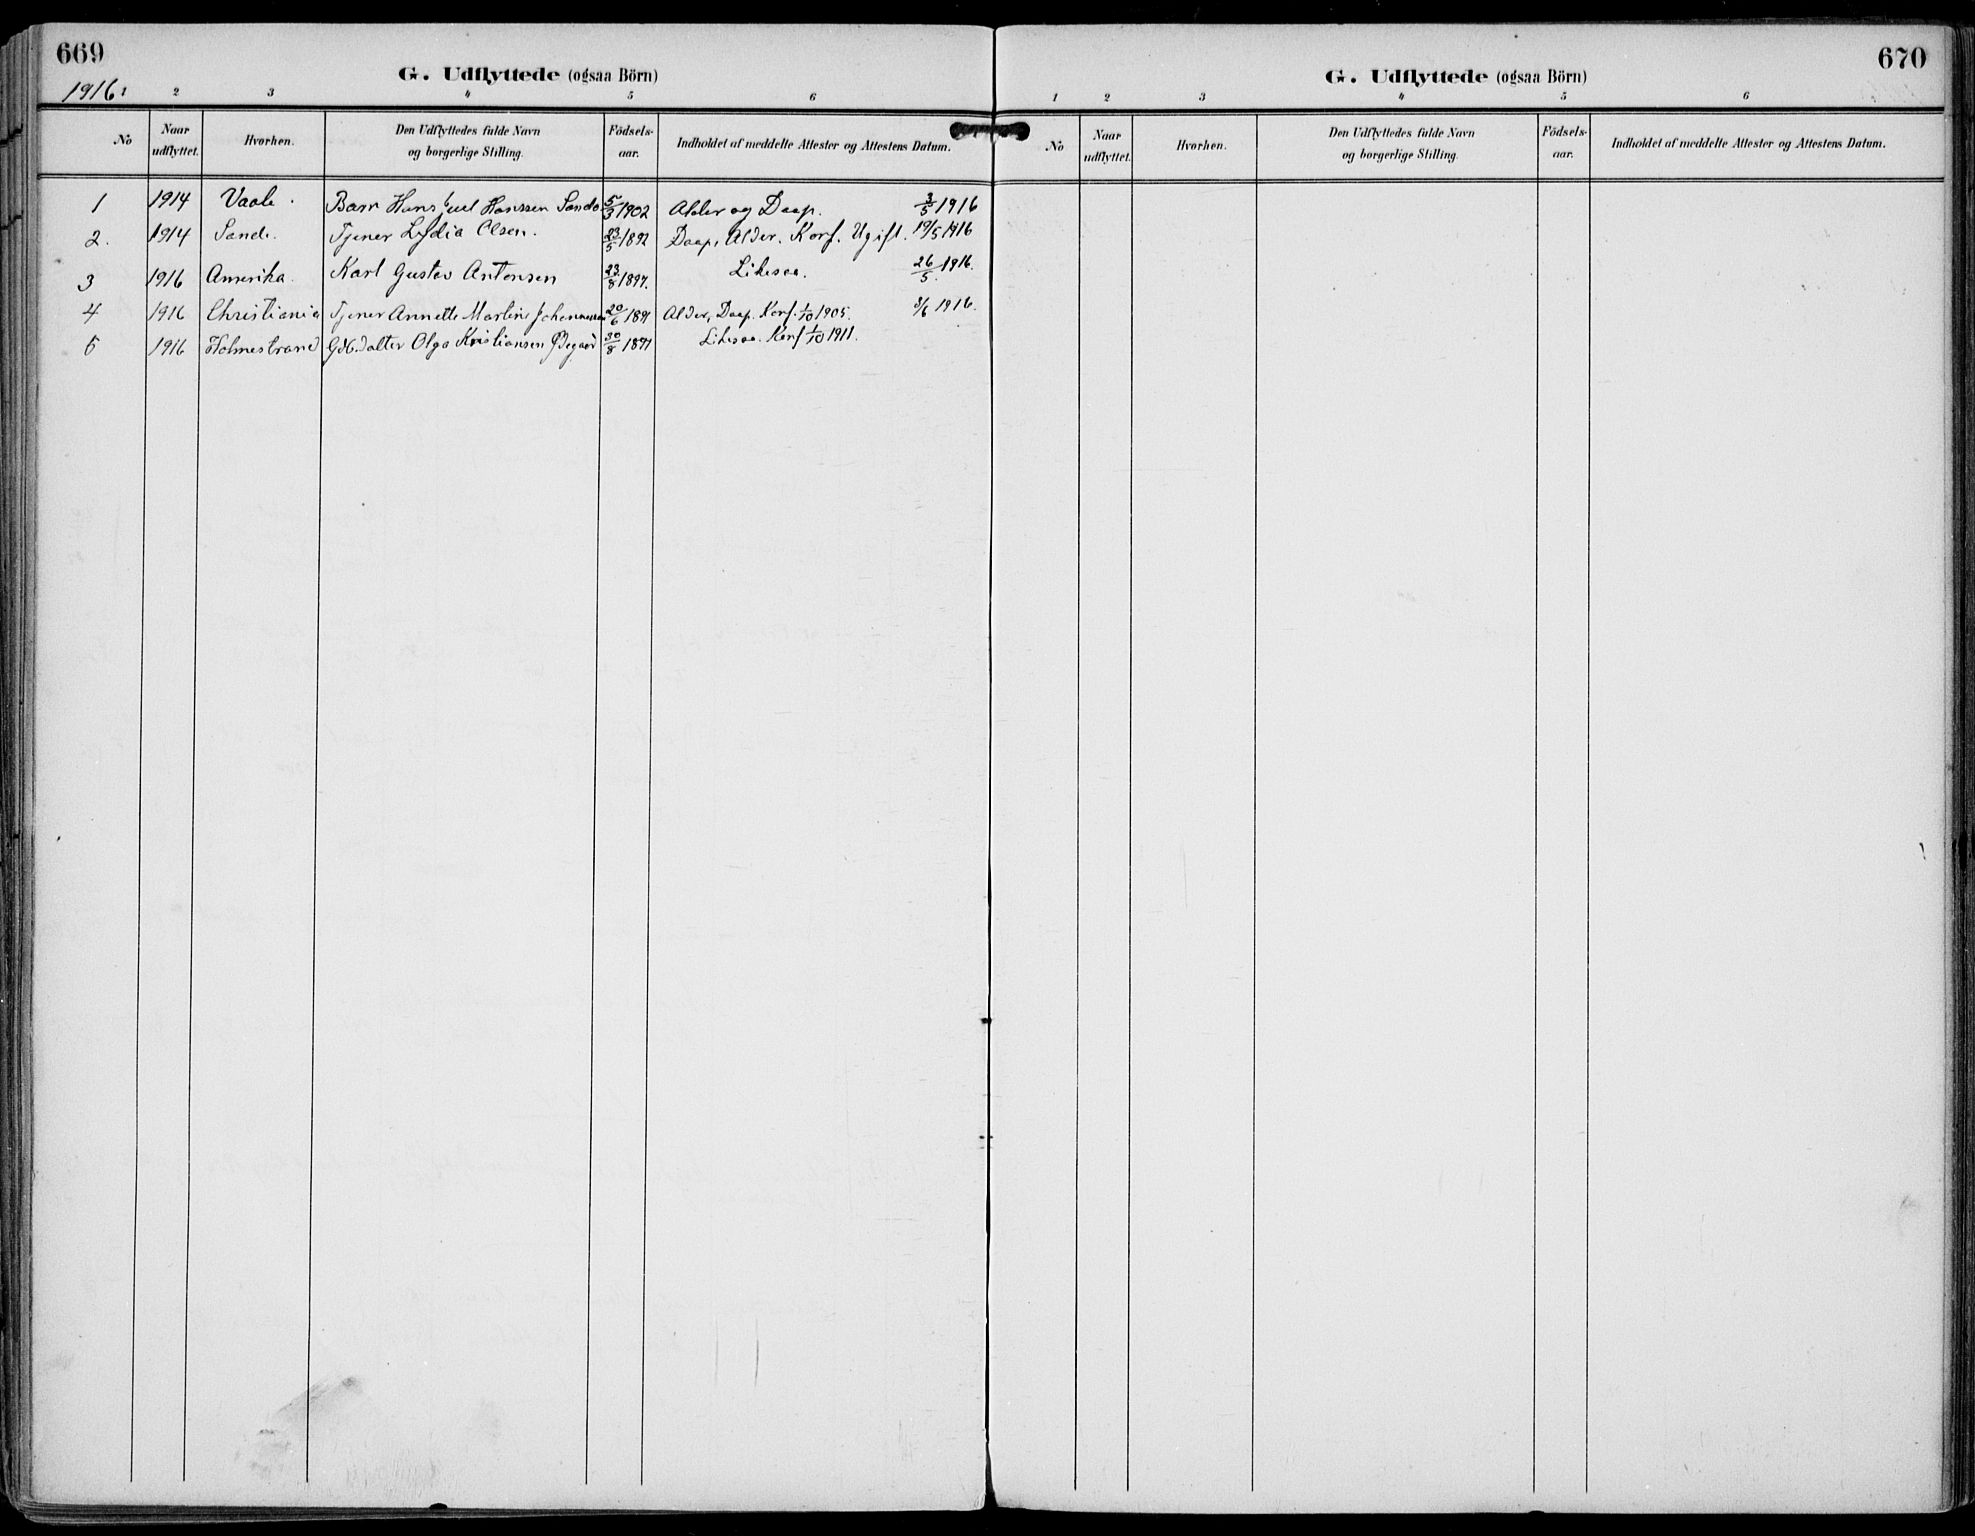 669
G. Udflyttede (ogsaa Börn)
1916
1 2 3 4 5 6
No Naar udflyttet. Hvorhen. Den Udflyttedes fulde Navn og borgerlige Stilling. Födsels-aar. Indholdet af meddelte Attester og Attestens Datum.
1 1914 Vaale. Barn Hans Hanssen Sande 5/3 1902 Alder og Daap. 3/5 1916
2. 1914 Sande. Tjener Lydia Olsen. 23/5 1892 Daap, Alder, Konf. Ugift. 19/5 1916
3 1916 Amerika. Karl Gustav Antonsen 23/8 1897. Likesaa. 26/5 1916.
4 1916 Christiania Tjener Annette Martine Johannessen 20/6 1891 Alder, Daap. Konf. 1/10 1905. 3/6 1916.
5 1916 Holmestrand datter Olga Kristiansen 30/8 1897 Likesaa. Konf 1/10 1911.
670
G. Udflyttede (ogsaa Börn)
1 2 3 4 5 6
No Naar udflyttet. Hvorhen. Den Udflyttedes fulde Navn og borgerlige Stilling. Födsels-aar. Indholdet af meddelte Attester og Attestens Datum.